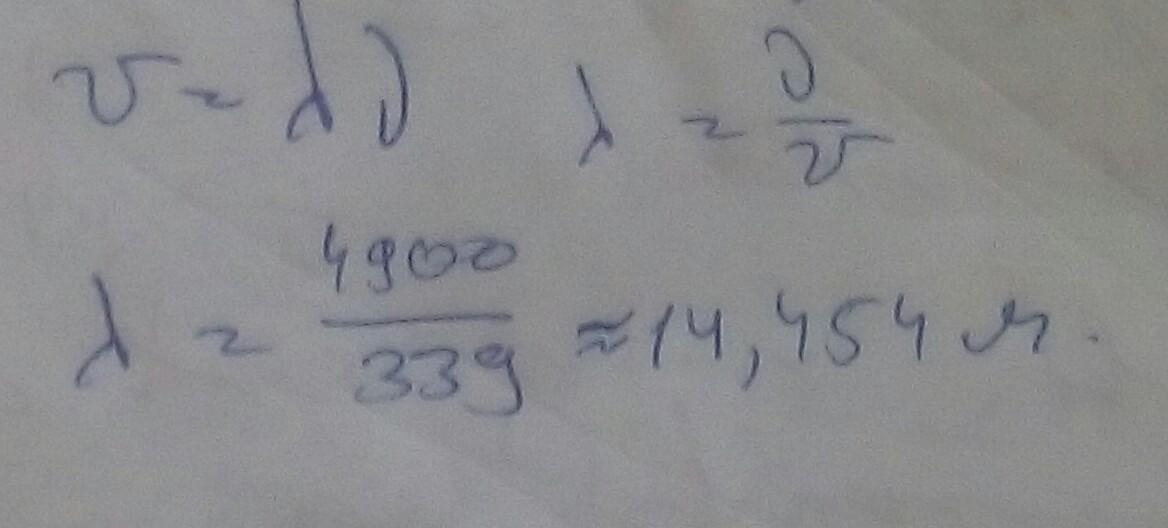 υ = λν λ = ν/υ
λ = 4900/339 ≈ 14,454 м.